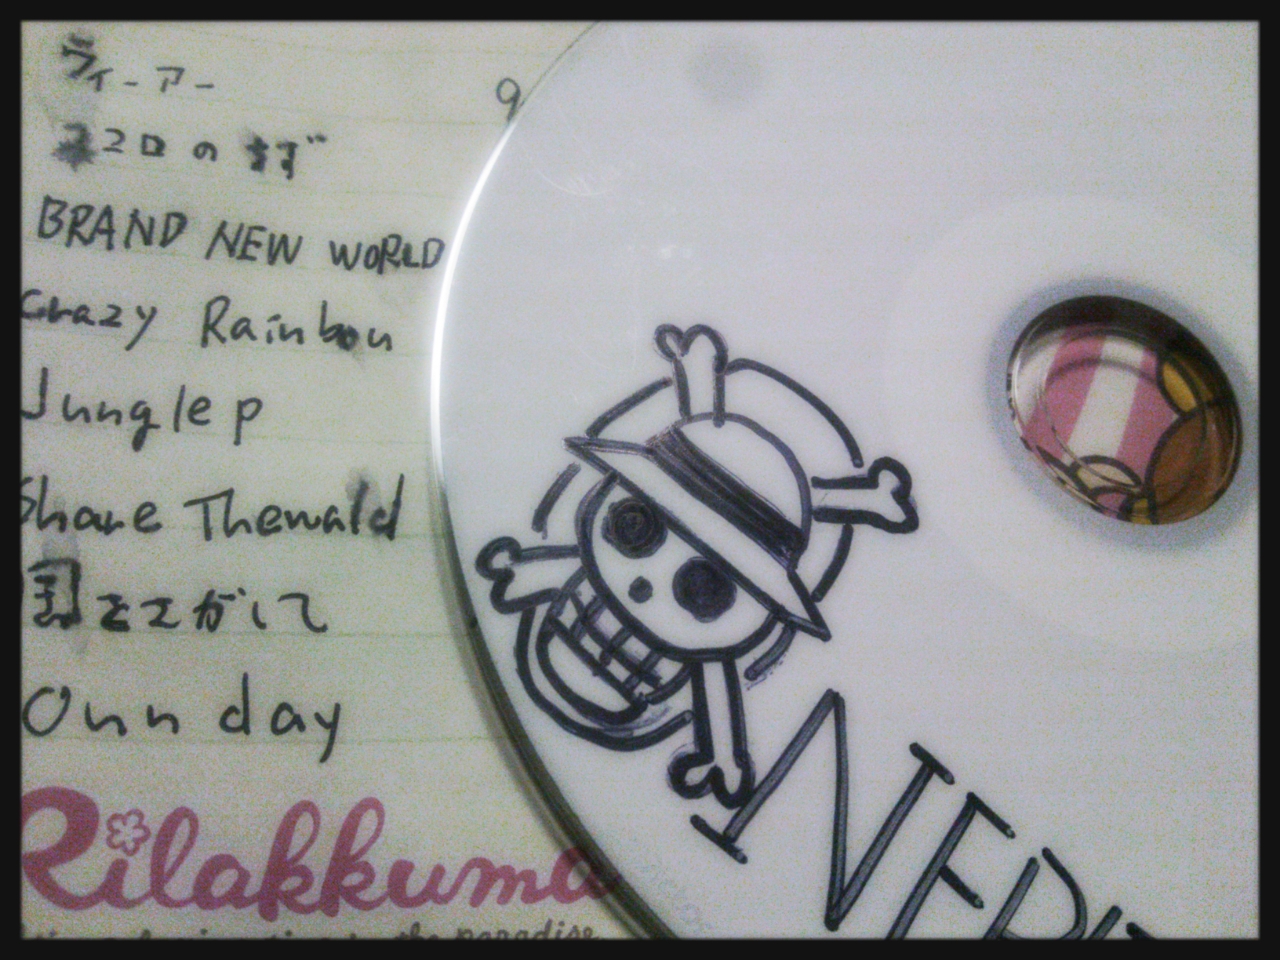 ウィーアー
ココロのちず
9
BRAND NEW WORLD
Crazy Rainbou
Jungle p
Share Thewald
をさがして
Ounday
Rilakkuma
in the paradise
NEPI